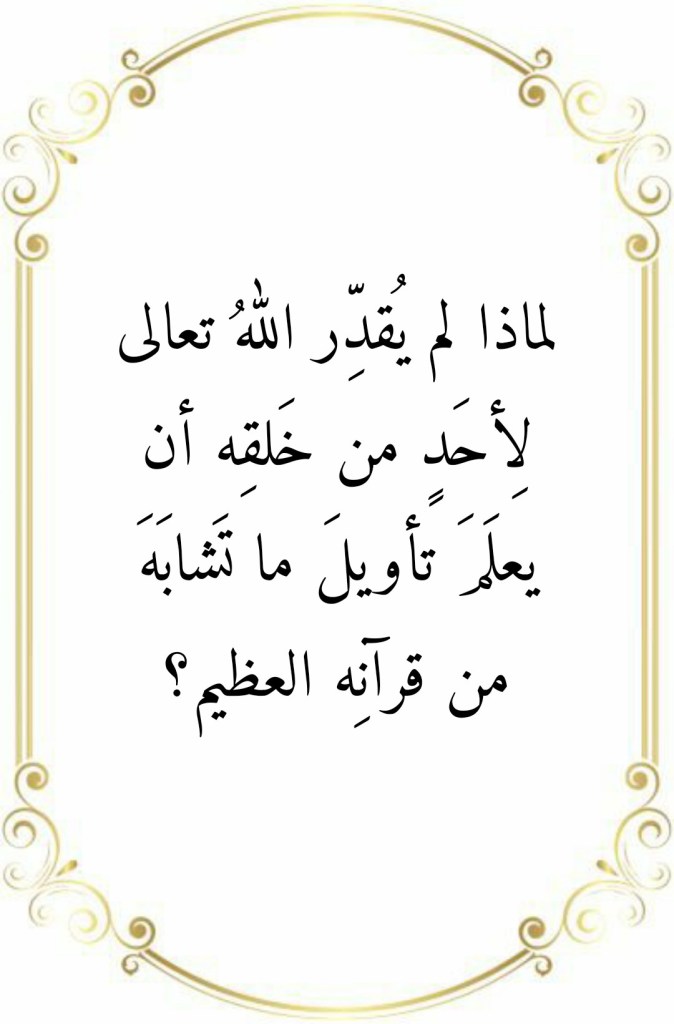 لماذا لم يُقدِّر اللهُ تعالى
لِأحَدٍ من خَلقِه أن
يعلَمَ تأويلَ ما تَشابَهَ
من قرآنِه العظيم؟